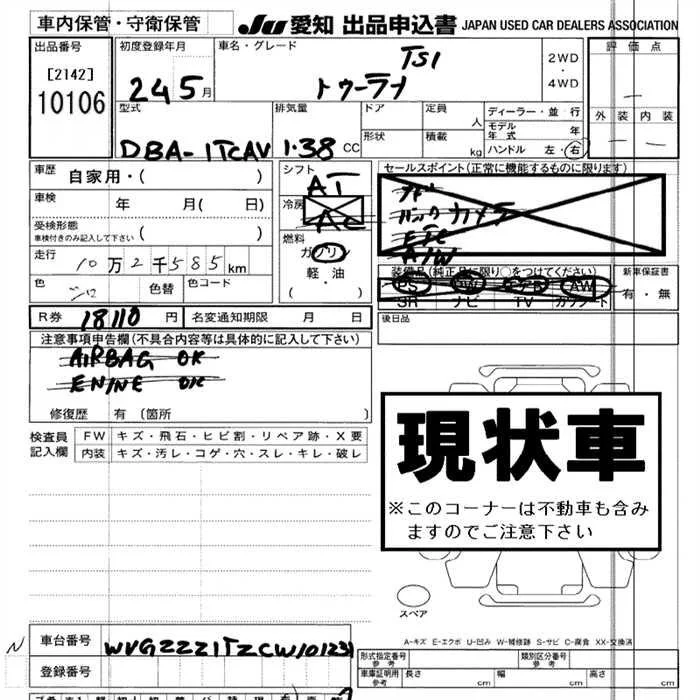 車内保管・守衛保管
JU 愛知 出品申込書 JAPAN USED CAR DEALERS ASSOCIATION
出品番号 初度登録年月 車名・グレード 評価点
[2142] TSI 2WD
10106 24 5月 トゥーラン ・ 4WD
型式 排気量 ドア 定員 人 ディーラー・並行 外装 内装
モデル年式 年
DBA-1TCAV 1.38 CC 形状 積載 kg ハンドル 左・右
車歴 自家用・( ) シフト AT セールスポイント(正常に機能するものに限ります)
車検 年 月( 日) 冷房 AC
バックカメラ
受検形態 ( ) ETC
車検付きのみ記入して下さい 燃料 A/W
走行 10万2千585km ガソリン
軽・油 装備品(純正品に限り○をつけてください) 新車保証書
色 色替 色コード (・) PS PW AW 有・無
SR ナビ TV ガソリート
R券 18110円 名変通知期限 月 日 後日品
注意事項申告欄(不具合内容等は具体的に記入して下さい)
AIRBAG OK
ENINE OK
修復歴 有 〔箇所 〕
検査員記入欄 FW キズ・飛石・ヒビ割・リペア跡・X要
内装 キズ・汚レ・コゲ・穴・スレ・キレ・破レ
現状車
※このコーナーは不動車も含み
ますのでご注意下さい
スペア
A-キズ E-エクボ U-凹み W-補修跡 S-サビ C-腐食 XX-交換済
N 車台番号 WVGZZZ1TZCW101231
登録番号
形式指定番号 参考 類別区分番号 参考
車庫証明用 参考 長さ cm 幅 cm 高さ cm